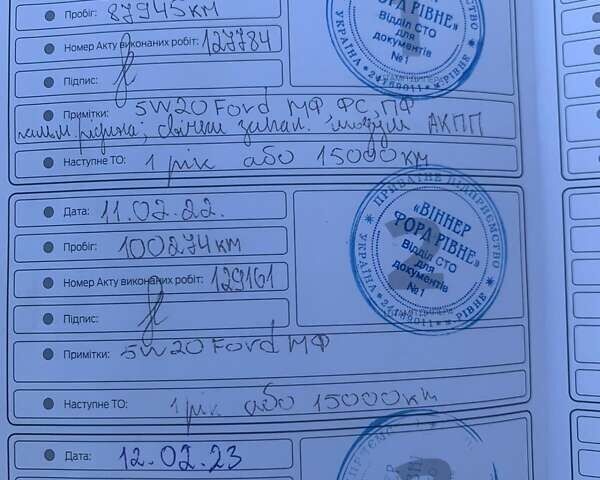 Пробіг: 87945км
Номер Акту виконаних робіт: 127784
Підпис:
Примітки: 5W20 Ford МФ ФС, ПФ
гальм. рідина; свічки запал. АКПП
Наступне ТО: 1 рік або 15000км
ФОРД РІВНЕ»
Відділ СТО
для
документів
№1
УКРАЇНА * 24169011 * м.РІВНЕ
Дата: 11.02.22.
Пробіг: 100274км
Номер Акту виконаних робіт: 129161
Підпис:
Примітки: 5W20 Ford МФ
Наступне ТО: 1 рік або 15000км
ПРИВАТНЕ ПІДПРИЄМСТВО
«ВІННЕР
ФОРД РІВНЕ»
Відділ СТО
для
документів
№1
УКРАЇНА * 24169011 * м.РІВНЕ
2
Дата: 12.02.23